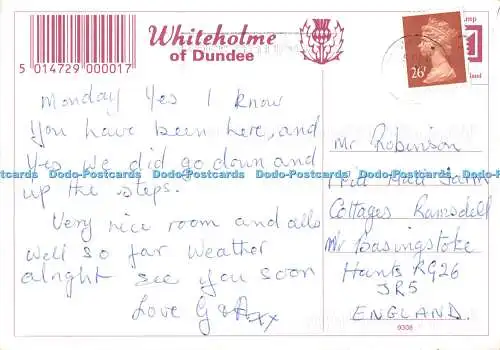 Whiteholme
of Dundee
5 014729 000017
26
Monday Yes I know
You have been here, and
Yes we did go down and
up the steps.
Very nice room and alls
well so far Weather
alright see you soon
Love G & A xx
Mr Robinson
Hill Farm
Cottages Ramsdell
Nr Basingstoke
Hants RG26
5R5
ENGLAND.
9308
Dodo-Postcards Dodo-Postcards Dodo-Postcards Dodo-Postcards Dodo-Postcards Dodo-Postcards